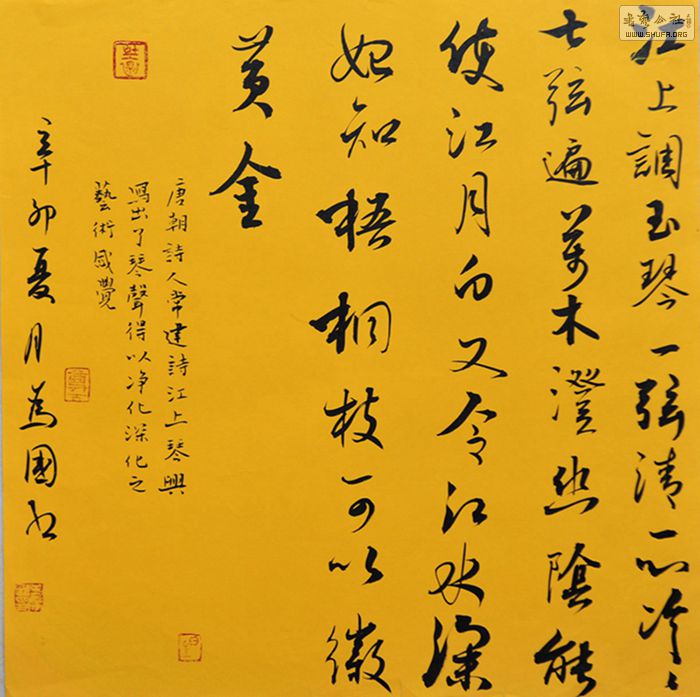 江上調玉琴一弦清一心泠〻
七弦遍萬木澄幽陰能
使江月白又令江水深
始知梧桐枝可以徽
黃金
唐朝詩人常建詩江上琴興
寫出了琴聲得以净化深化之
藝術感覺
辛卯夏月為國書
書藝公社
WWW.SHUFA.ORG